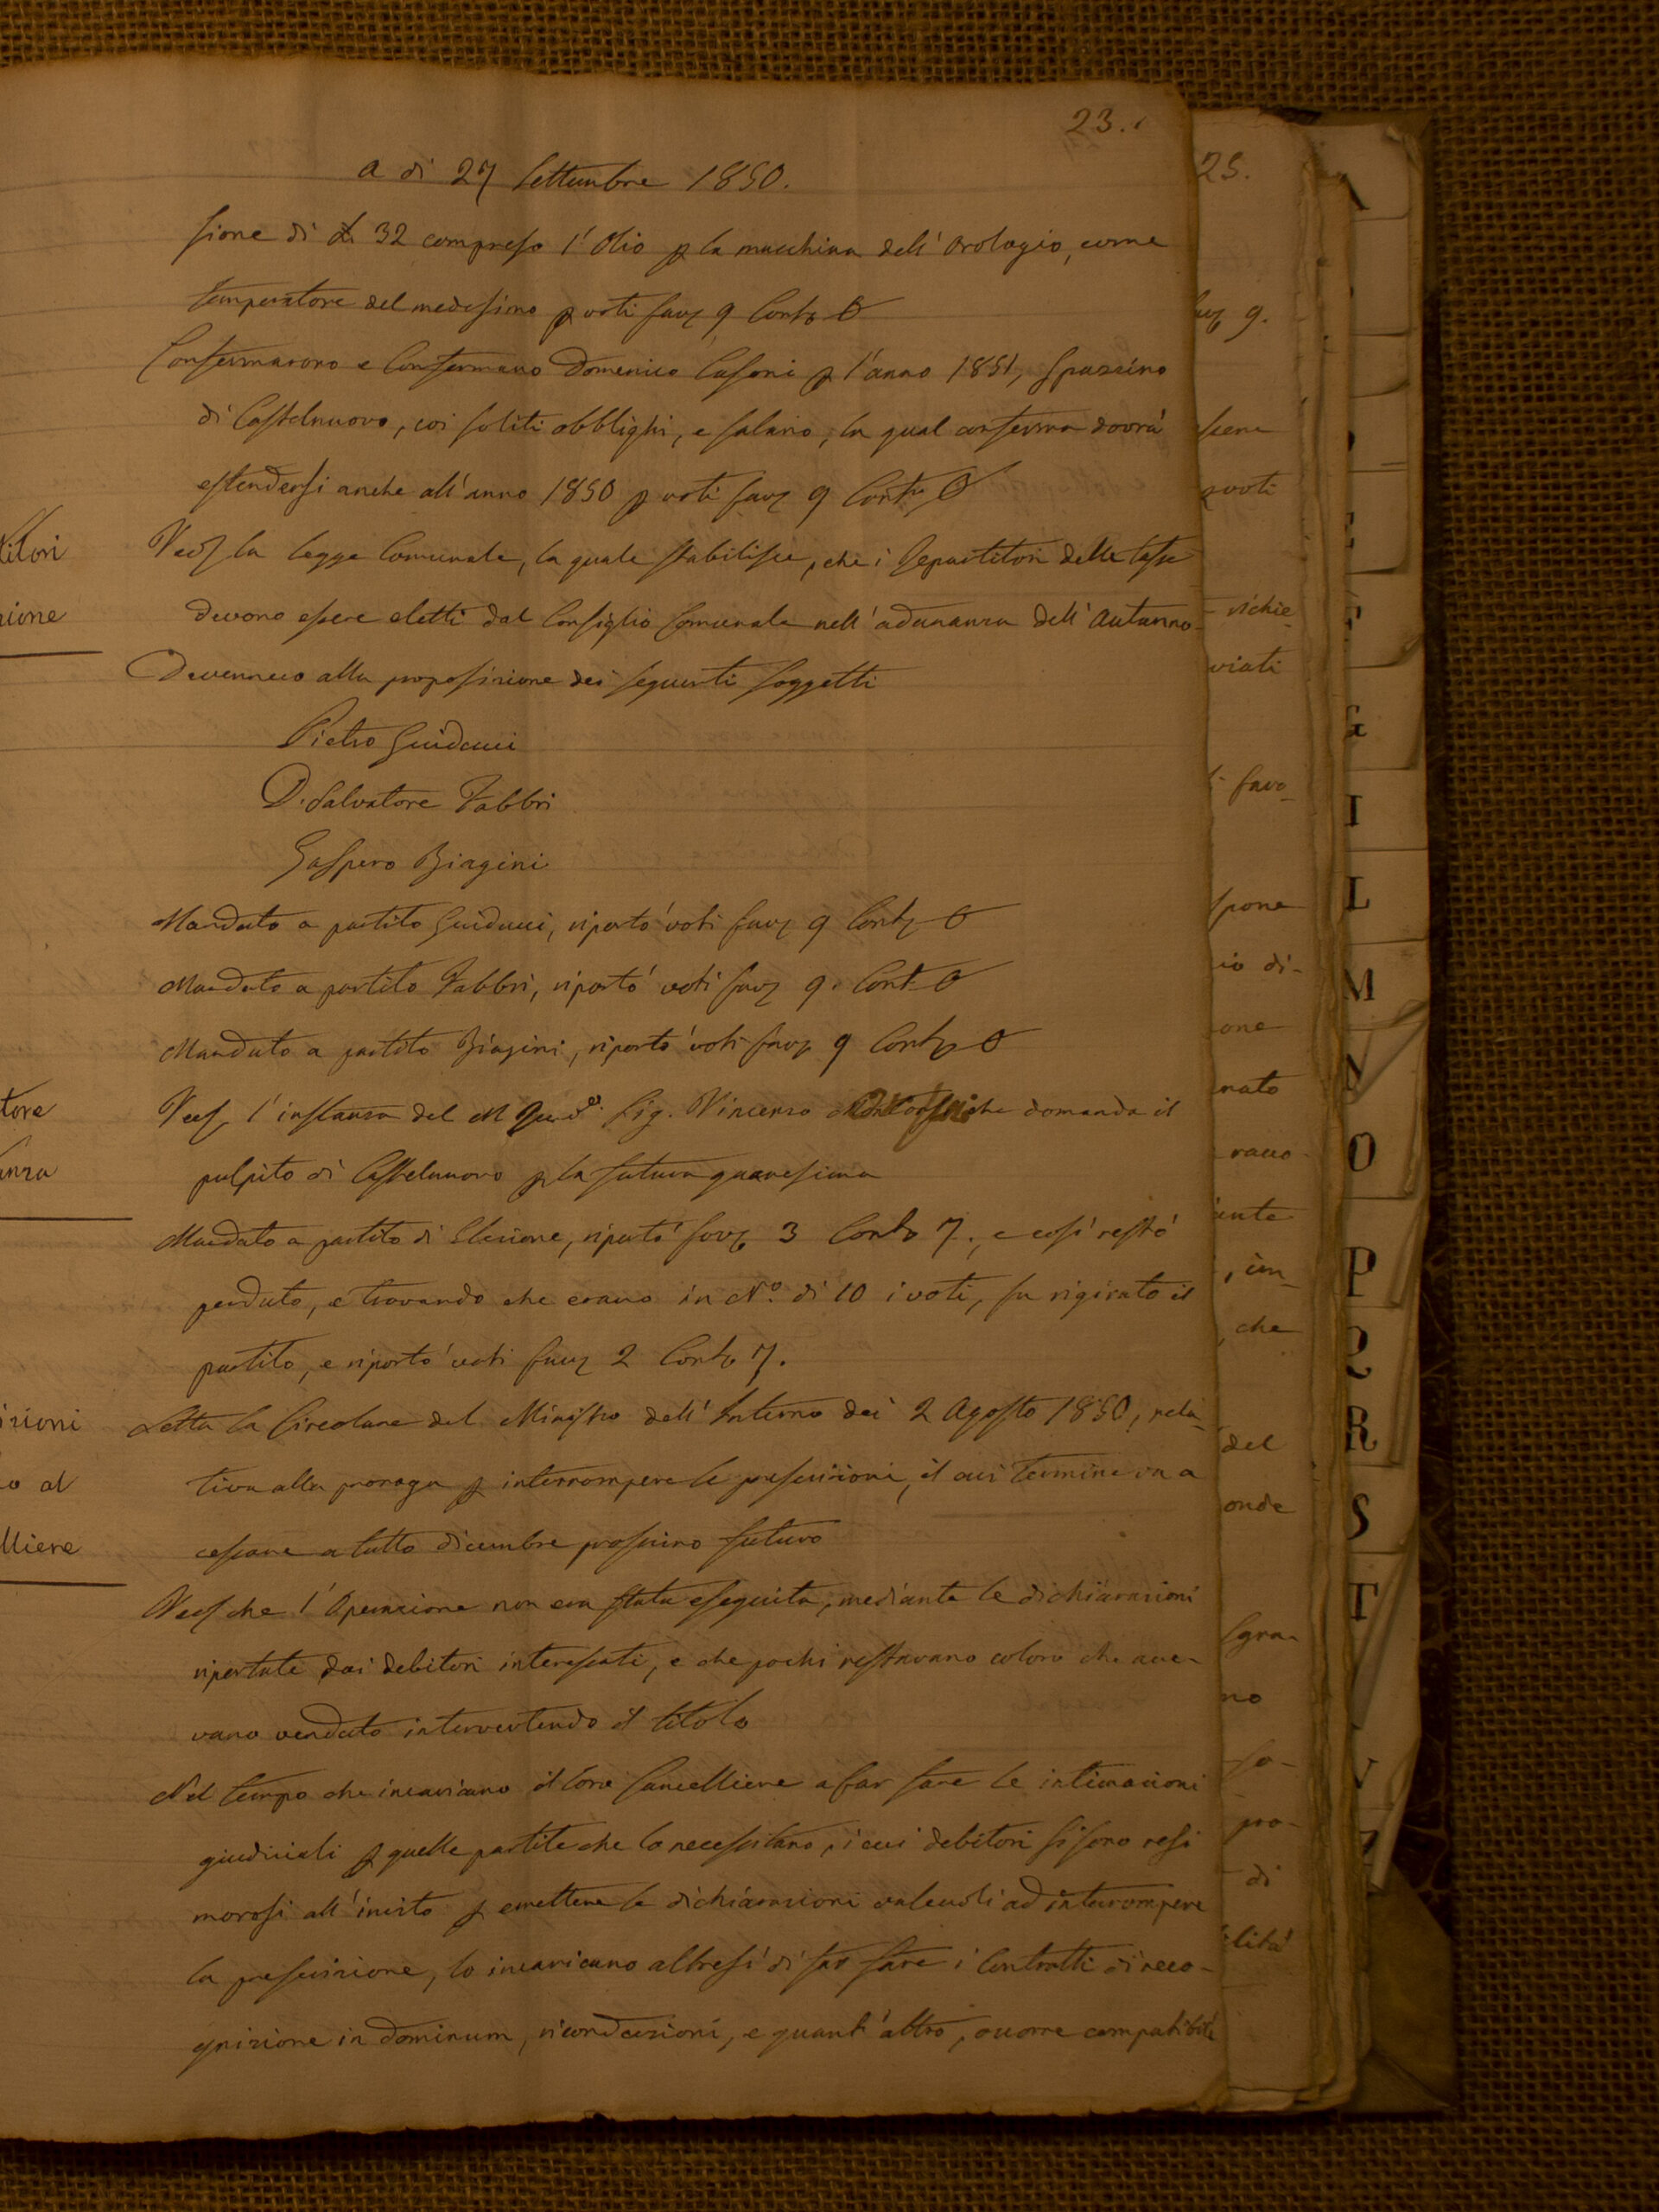 23.
a dì 27 Settembre 1850.
sione di £ 32 compreso l'Olio p la macchina dell'Orologio, come
temperatore del medesimo p voti fav 9 Cont 0
Confermarono e Confermano Domenico Casoni p l'anno 1851, Spazzino
di Castelnuovo, coi soliti obblighi, e salario, la qual conferma dovrà
estendersi anche all'anno 1850 p voti fav 9 Cont 0
Ved la legge Comunale, la quale stabilisce, che i Repartitori delle tasse
devono essere eletti dal Consiglio Comunale nell'adunanza dell'Autunno
Devennero alla proposizione dei seguenti soggetti
Pietro Guiducci
D. Salvatore Fabbri
Gaspero Biagini
Mandato a partito Guiducci, riportò voti fav 9 Cont 0
Mandato a partito Fabbri, riportò voti fav 9. Cont 0
Mandato a partito Biagini, riportò voti fav 9 Cont 0
l'instanza del M Sig. Vincenzo che domanda il
pulpito di Castelnuovo p la futura quaresima
Mandato a partito di Elezione, riportò fav 3 Cont 7., e così restò
perduto, e trovando che erano in N.º di 10 i voti, fu rigirato il
partito, e riportò voti fav 2 Cont 7.
Letta la Circolare del Ministro dell'Interno dei 2 Agosto 1850, rela-
tiva alla proroga p interrompere le prescrizioni, il cui termine va a
cessare a tutto dicembre prossimo futuro
che l'Operazione non era stata eseguita, mediante le dichiarazioni
riportate dai debitori interessati, e che pochi restavano coloro che ave-
vano venduto intervertendo il titolo
Nel tempo che incaricano il loro Cancelliere a far fare le intimazioni
giudiciali p quelle partite che lo necessitano, i cui debitori si sono resi
morosi all'invito p emettere le dichiarazioni valevoli ad interrompere
la prescrizione, lo incaricano altresì di far fare i Contratti di reco-
gnizione in dominum, riconduzioni, e quant'altro, occorre compatibile
titori
zione
tore
anza
izioni
o al
lliere
25.
9.
voti
richie
viati
favo-
spone
io di-
one
nato
ente
che
del
onde
no
pro-
di
ilità
E
F
G
I
L
M
N
O
P
Q
R
S
T
V
Z